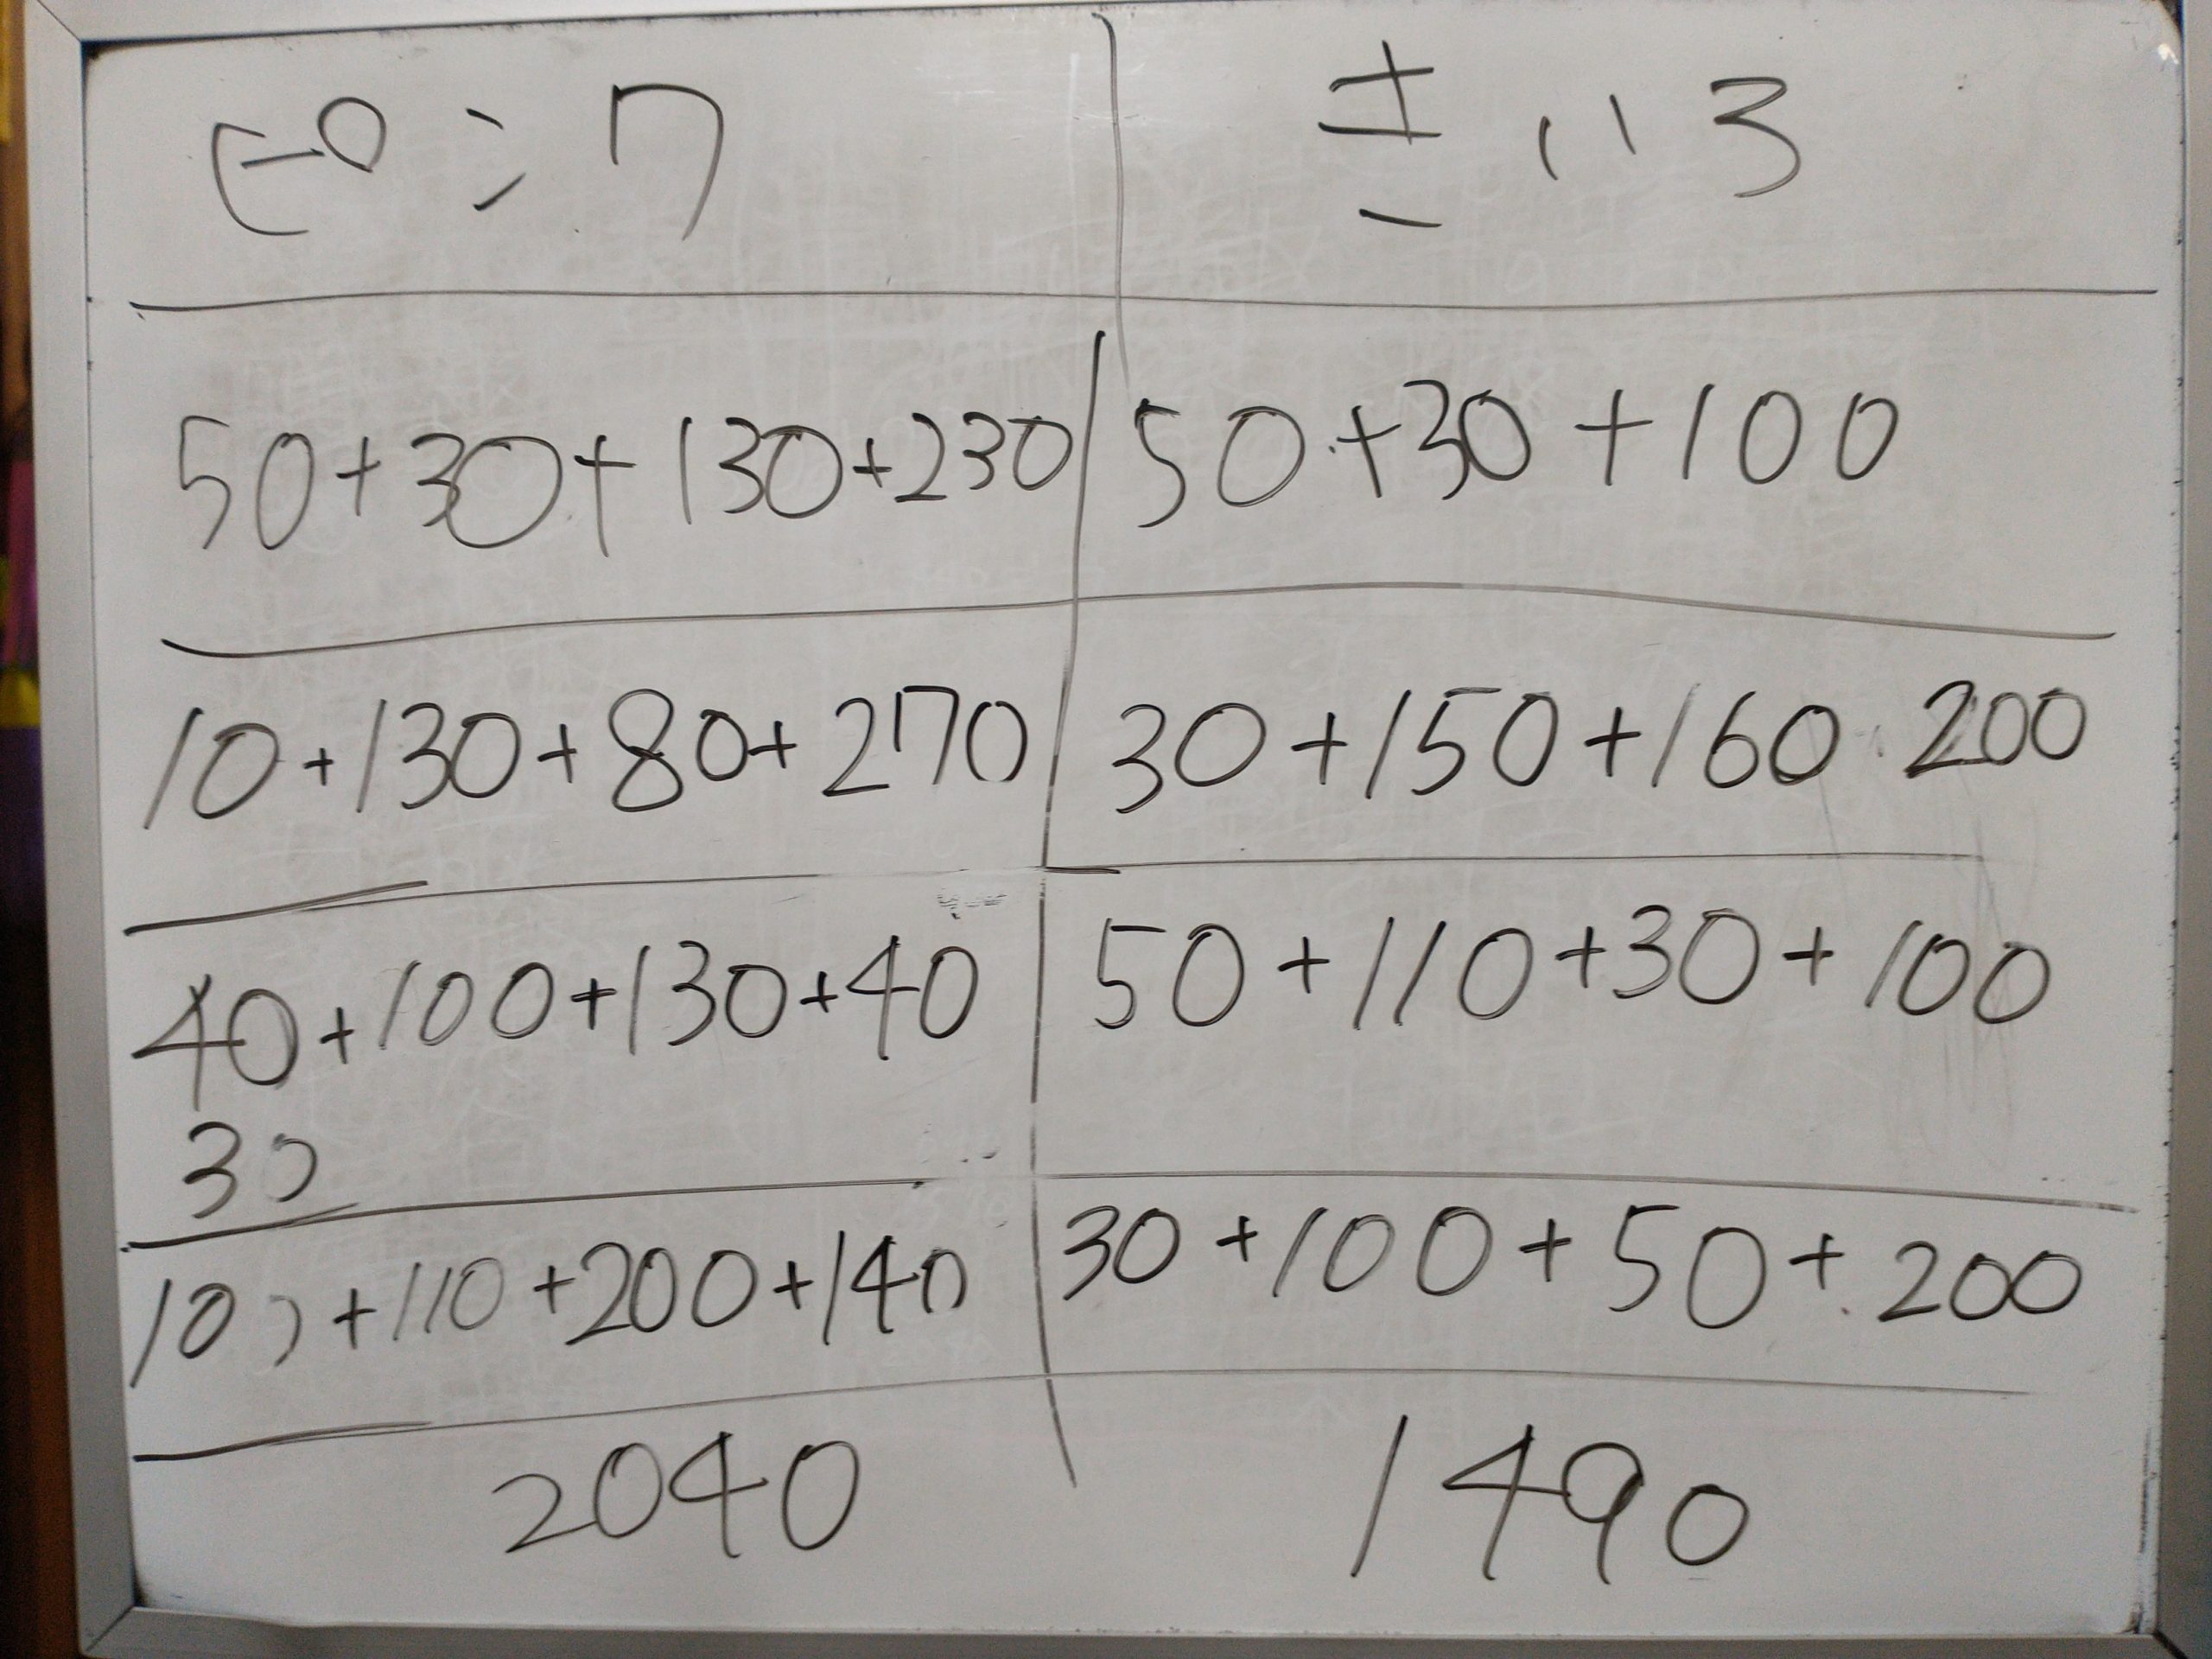 ピンク
きいろ
50+30+130+230
50+30+100
10+130+80+270
30+150+160 200
40+100+130+40
30
50+110+30+100
100+110+200+140
30+100+50+200
2040
1490